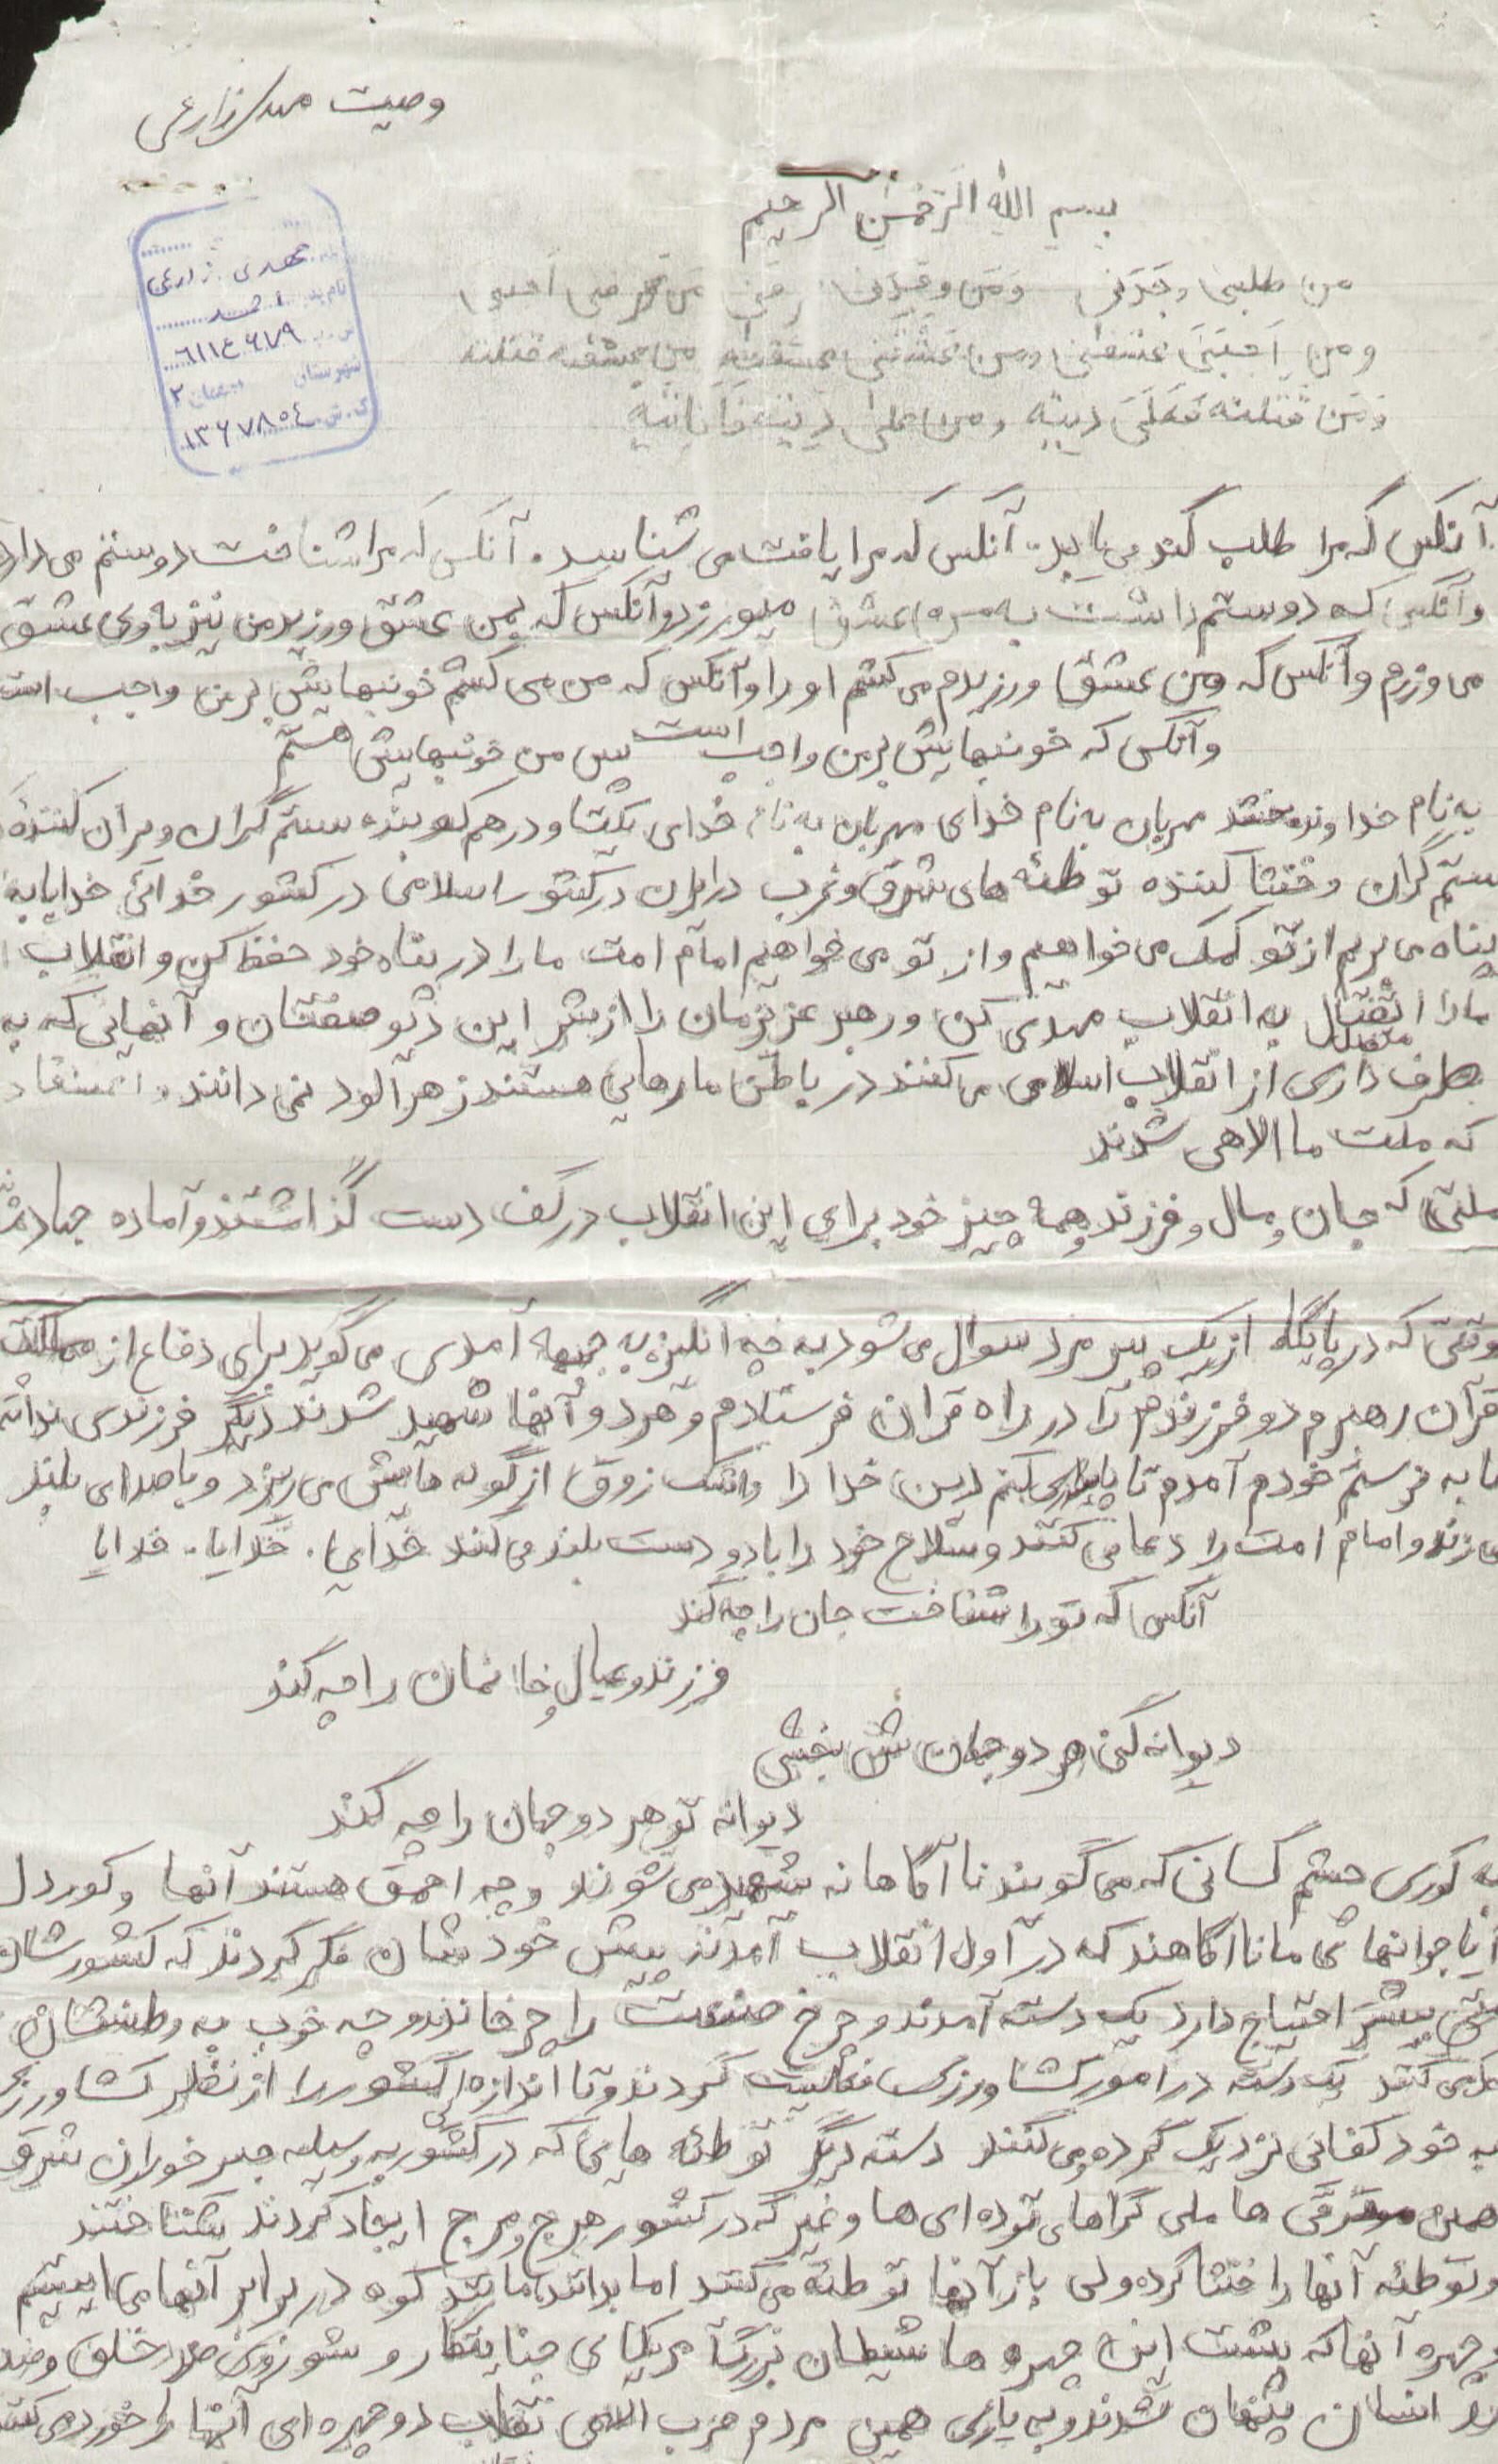 وصیت مهدی زارعی
بسم الله الرحمن الرحیم
مهدی زارعی
نام پدر احمد
٦١١٤٦٧٩
شهرستان ٢
ک.ش ١٣٦٧٨٥٤
من طلبنی وجدنی ومن وجدنی عرفنی من عرفنی احبنی
ومن احبنی عشقنی ومن عشقنی عشقته من عشقته قتلته
ومن قتلته فعلی دیته ومن علی دیته فانا دیته
آنکس که مرا طلب کند می یابد. آنکس که مرا یافت می شناسد. آنکس که مرا شناخت دوستم می دارد
وآنکس که دوستم داشت به من عشق میورزد وآنکس که بمن عشق ورزید من نیز باوی عشق
می ورزم وآنکس که من عشق ورزیدم می کشم او را وآنکس که من می کشم خونبهایش برمن واجب است
وآنکس که خونبهایش برمن واجب است پس من خونبهایش هستم
به نام خداوند بخشنده مهربان به نام خدای مهربان به نام خدای یکتا و درهم کوبنده ستم گران ویران کننده
ستم گران وخنثا کننده توطئه های شرق وغرب در ایران در کشور اسلامی در کشور خدائی خدایا به
پناه می بریم از تو کمک می خواهیم و از تو می خواهیم امام امت ما را در پناه خود حفظ کن و انقلاب
ما را متصل به انقلاب مهدی کن و رهبر عزیزمان را از شر این دیو صفتان و آنهایی که به
طرف داری از انقلاب اسلامی می کنند در باطن مارهایی هستند زهرآلود نمی دانند
که ملت ما الاهی شدند
ملتی که جان و مال و فرزند و همه چیز خود برای این انقلاب در کف دست گذاشتند و آماده جهادند
وقتی که در پایگاه از یک پیر مرد سوال می شود به چه انگیزه به جبهه آمدی می گوید برای دفاع از مملکت
قرآن رهبرم دو فرزندم را در راه قران فرستادم و هر دو آنها شهید شدند دیگر فرزندی نداشته
تا به فرستم خودم آمدم تا پایداری کنم دین خدا را و اشک زوق از گونه هایش می ریزد و با صدای بلند
می زند و امام امت را دعا می کنند و سلاح خود را با دو دست بلند می کند خدایا. خدایا. خدایا
آنکس که تو را شناخت جان را چه کند
فرزند و عیال و خانمان را چه کند
دیوانه کنی هر دو جهان ش بخشی
دیوانه تو هر دو جهان را چه کند
به کوری چشم کسانی که می گویند نا آگاهانه شهید می شوند و چه احمق هستند آنها و کور دل
آیا جوانهای ما نا آگاهند که در اول انقلاب آمدند پیش خودشان فکر کردند که کشورشان
بیشتر احتیاج دارد یک دسته آمدند و چرخ صنعت را چرخاندند و چه خوب به وطنشان
می کنند یک دسته در امور کشاورزی فعالیت کردند و تا اندازه ای کشور را از نظر کشاورزی
به خود کفائی نزدیک کرده و می کنند دسته دیگر توطئه هایی که در کشور به وسیله جیر خوران شرق
همین مترقی ها ملی گراهای توده ای ها و غیر که در کشور هرج و مرج ایجاد کردند شناختند
و توطئه آنها را خنثا کرده ولی باز آنها توطئه می کنند اما بدانند مانند کوه در برابر آنها می ایستیم
و چهره آنها که پشت این چهره ها شیطان بزرگ آمریکای جنایتکار و شوروی ضد خلق و ضد
انسان پنهان شدند و به یاری همین مردم حزب اللهی نقاب دو چهره ای آنها را خورد می کنند